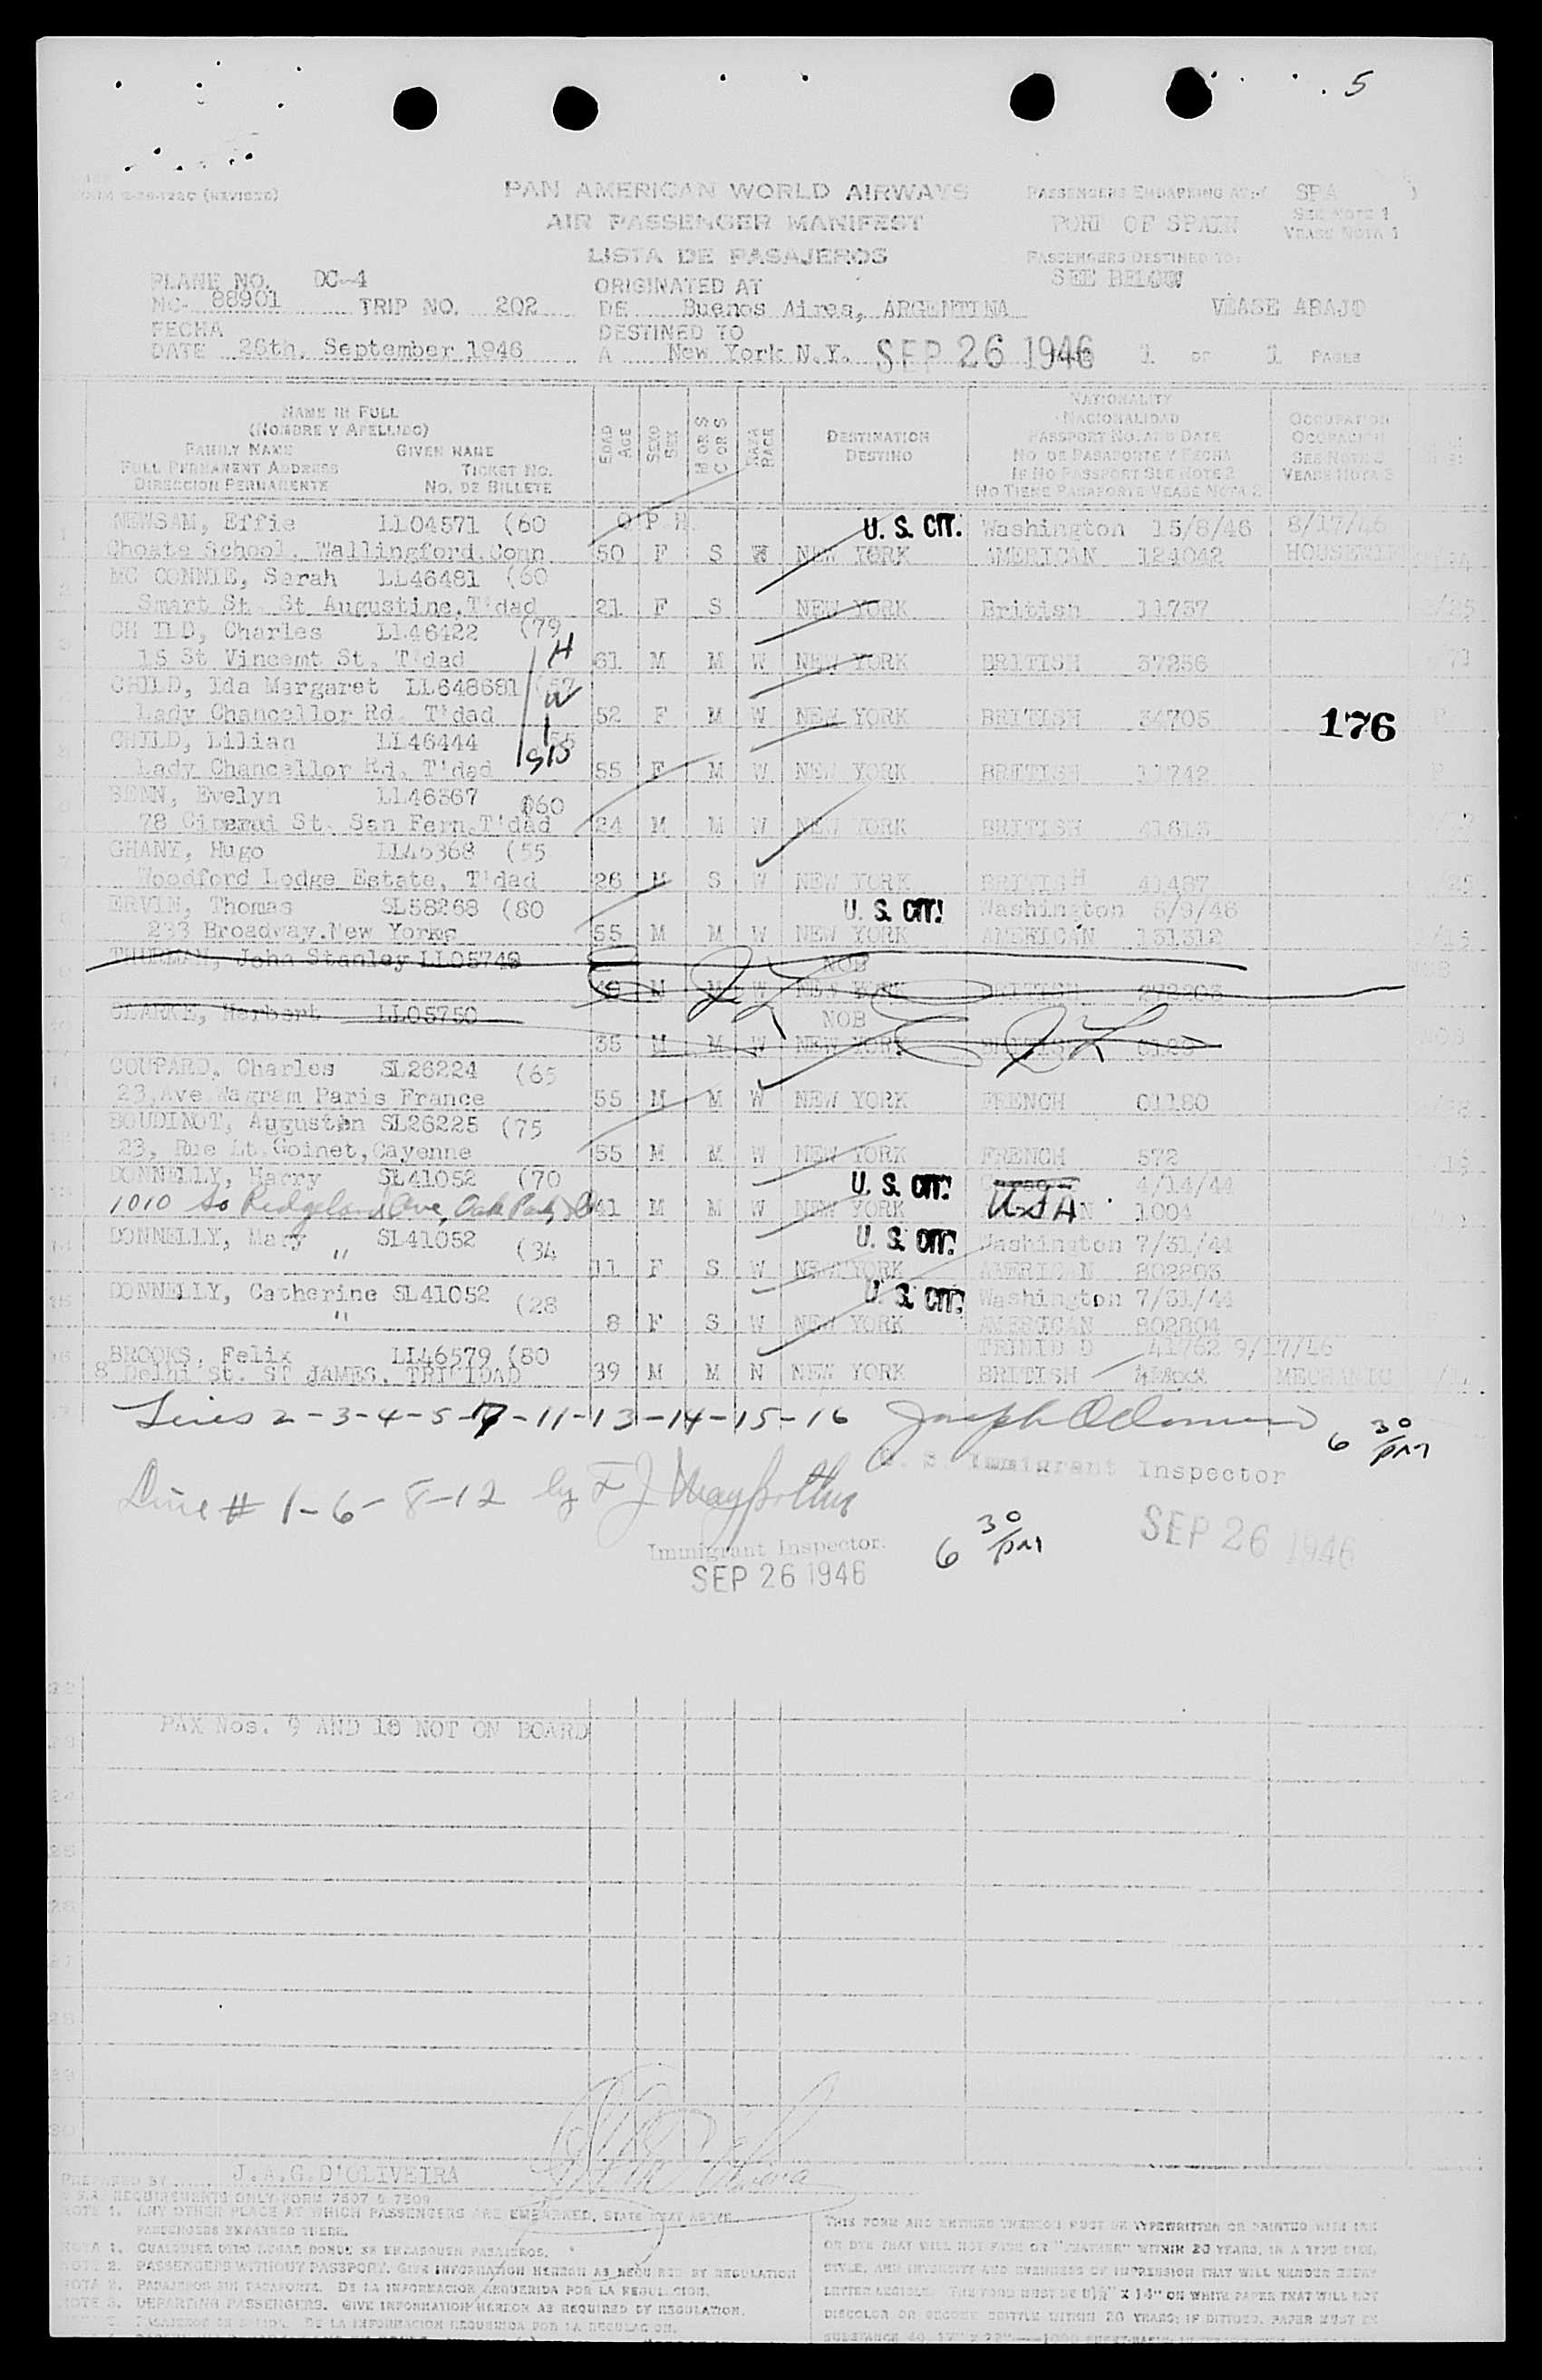 5
FORM (REVISED)
PAN AMERICAN WORLD AIRWAYS
AIR PASSENGER MANIFEST
LISTA DE PASAJEROS
PASSENGERS EMBARKING AT: SPA
PORT OF SPAIN
SEE NOTE 1
VEASE NOTA 1
PASSENGERS DESTINED TO:
SEE BELOW
VEASE ABAJO
PLANE NO. DC-4
NC- 88901 TRIP NO. 202
FECHA
DATE 26th. September 1946
ORIGINATED AT
DE Buenos Aires, ARGENTINA
DESTINED TO
A New York N.Y. SEP 26 1946
1 OF 1 PAGES
NAME IN FULL
(NOMBRE Y APELLIDO)
FAMILY NAME GIVEN NAME
FULL PERMANENT ADDRESS TICKET NO.
DIRECCION PERMANENTE NO. DE BILLETE
EDAD AGE
SEXO SEX
M OR S C OR S
RAZA RACE
DESTINATION
DESTINO
NATIONALITY
NACIONALIDAD
PASSPORT NO. AND DATE
NO DE PASAPORTE Y FECHA
IF NO PASSPORT SEE NOTE 2
NO TIENE PASAPORTE VEASE NOTA 2
OCCUPATION
OCUPACION
SEE NOTE 3
VEASE NOTA 3
1 NEWSAM, Effie LL04571 (60 U. S. CIT. Washington 15/8/46
Choate School, Wallingford, Conn 50 F S W NEW YORK AMERICAN 124042
2 MC CONNIE, Sarah LL46481 (60
Smart St. St Augustine, T'dad 21 F S NEW YORK British 11737
3 CHILD, Charles LL46422 (79 H
15 St Vincent St, T'dad 61 M M W NEW YORK BRITISH 37256
CHILD, Ida Margaret LL648681 W
Lady Chancellor Rd. T'dad 52 F M W NEW YORK BRITISH 34705
176
CHILD, Lilian LL46444 (55
Lady Chancellor Rd. T'dad Sis 55 F M W NEW YORK BRITISH 11742
BENN, Evelyn LL46367 (60
78 St. San Fern. T'dad 24 M M W NEW YORK BRITISH 41613
GHANY, Hugo LL46368 (55
Woodford Lodge Estate, T'dad 26 M S W NEW YORK BRITISH 41487
ERVIN, Thomas SL58268 (80 U. S. CIT. Washington
233 Broadway. New York 55 M M W NEW YORK AMERICAN 131312
THURMAN, John Stanley LL05749 NOB
M M W NEW YORK BRITISH
CLARKE, Herbert LL05750 NOB
35 M M W NEW YORK BRITISH
COUPARD, Charles SL26224 (65
23, Ave Wagram Paris France 55 M M W NEW YORK FRENCH 01180
BOUDINOT, SL26225 (75
23, Rue Lt. Goinet, Cayenne 55 M M W NEW YORK FRENCH 572
DONNELLY, Harry SL41052 (70 U. S. CIT. 4/14/44
1010 So Ridgeland Ave, Oak Park, Ill 41 M M W NEW YORK USA 1004
DONNELLY, Mary SL41052 (34 U. S. CIT. Washington 7/31/44
" 11 F S W NEW YORK AMERICAN 802803
DONNELLY, Catherine SL41052 (28 U. S. CIT. Washington 7/31/44
" 8 F S W NEW YORK AMERICAN 802804
16 BROOKS, Felix LL46579 (80 TRINIDAD 41762 9/17/46
8 Delhi St. ST JAMES, TRINIDAD 39 M M N NEW YORK BRITISH MECHANIC
Lines 2-3-4-5-7-11-13-14-15-16 Joseph 6 30 pm
U. S. Immigrant Inspector
Line # 1-6-8-12 by F J
Immigrant Inspector.
SEP 26 1946
6 30 pm
SEP 26 1946
PAX Nos. 9 AND 10 NOT ON BOARD
PREPARED BY J.A.G. D'OLIVEIRA
REQUIREMENTS ONLY FORM 7507 & 7509
NOTE 1. ANY OTHER PLACE AT WHICH PASSENGERS ARE EMBARKED, STATE THAT ABOVE.
PASSENGERS EMBARKED THERE.
NOTA 1. CUALQUIER OTRO LUGAR DONDE SE EMBARQUEN PASAJEROS.
NOTE 2. PASSENGERS WITHOUT PASSPORT. GIVE INFORMATION HEREON AS REQUIRED BY REGULATION
NOTA 2. PASAJEROS SIN PASAPORTE. DE LA INFORMACION REQUERIDA POR LA REGULACION.
NOTE 3. DEPARTING PASSENGERS. GIVE INFORMATION HEREON AS REQUIRED BY REGULATION.
THIS FORM AND ENTRIES THEREON MUST BE TYPEWRITTEN OR PRINTED WITH INK
OR DYE THAT WILL NOT FADE OR "FEATHER" WITHIN 20 YEARS, IN A TYPE SIZE,
STYLE, AND INTENSITY AND EVENNESS OF IMPRESSION THAT WILL RENDER EVERY
LETTER LEGIBLE. THE FORM MUST BE 8½" X 14" ON WHITE PAPER THAT WILL NOT
DISCOLOR OR BECOME BRITTLE WITHIN 20 YEARS; IF DITTOED, PAPER MUST BE